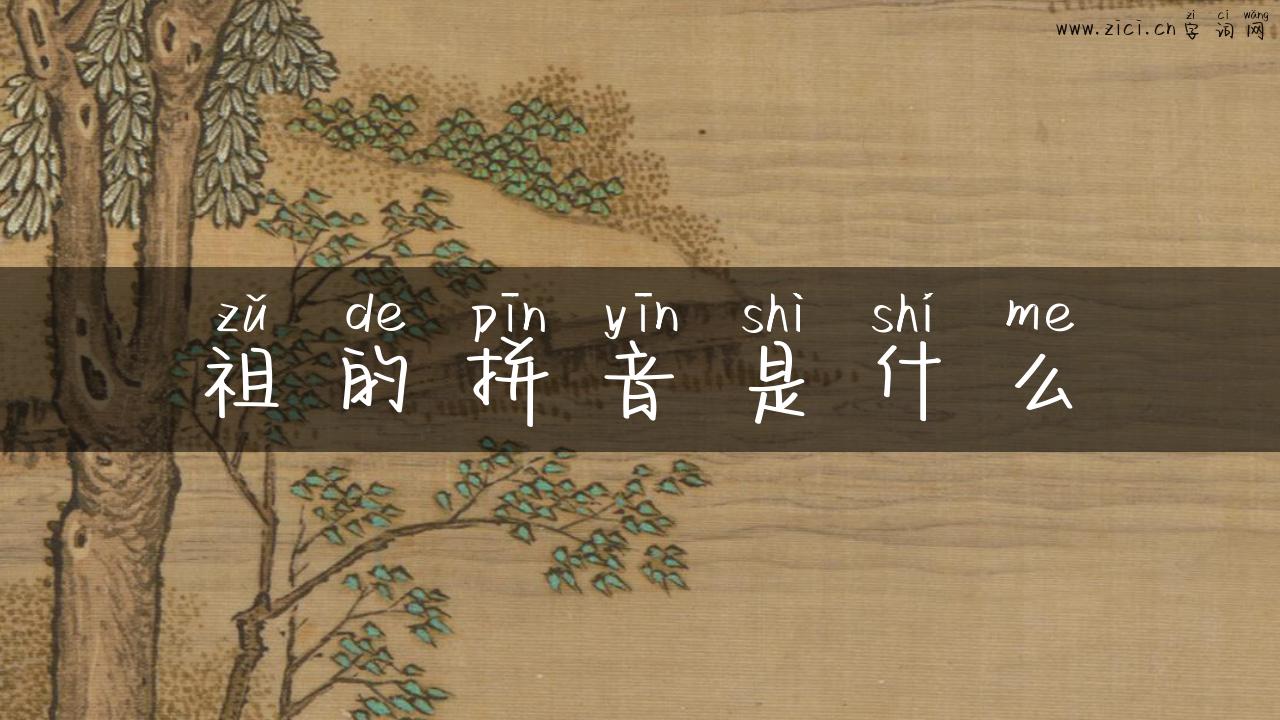 zì cí wǎng
www.zici.cn 字词网
zǔ de pīn yīn shì shí me
祖的拼音是什么